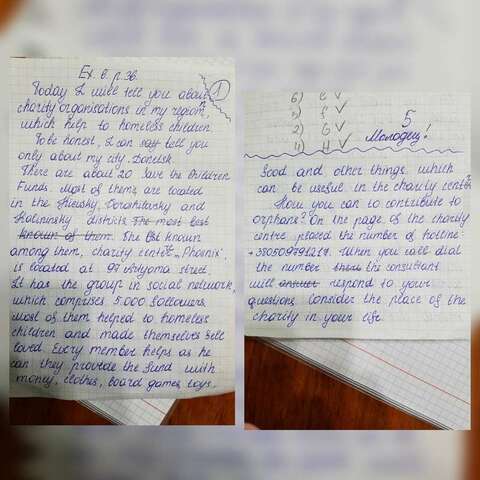 Ex. 6. p. 36.
1
Today I will tell you about
charity organisations in my region,
which help to homeless children.
To be honest, I can say tell you
only about my city. Donetsk.
There are about 20 Save the Children
Funds. Most of them, are located
in the Kievsky, Voroshilovsky and
Kalininsky districts. The most best
known of them. The best known
among them, charity centre „Phoenix"
is located at 97 Artyoma street.
It has the group in social network,
which comprises 5.000 followers
most of them helped to homeless
children and made themselves feel
loved. Every member helps as he
can they provide the fund with
money, clothes, board games, toys,
6) C ✓
2) G ✓
4) H ✓
5
Молодец!
food and other things which
can be useful in the charity centre.
How you can to contribute to
orphans? On the page of the charity
centre placed the number of hotline:
+380509791217. When you call dial
the number there the consultant
will answer respond to your
questions. Consider the place of the
charity in your life.